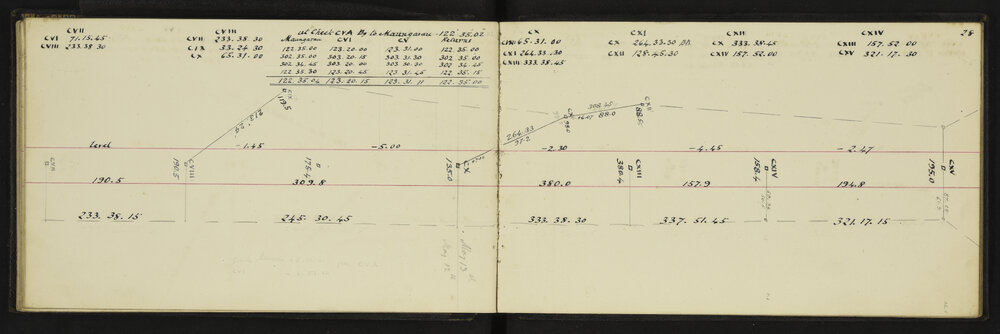 CVII
CVI 71.15.45
CVIII 233.38.30
CVIII
CVII 233.38.30
CIX 33.24.30
CX 65.31.00
at Check CVA Bg to Maungarau - 122.35.02
Maungarau CVI CV Returns
122.35.00 123.20.00 123.31.00 122.35.00
302.35.00 303.20.15 303.31.30 302.35.00
302.34.45 303.20.00 303.30.30 302.34.45
122.35.30 123.20.45 123.31.45 122.35.15
122.35.04 123.20.15 123.31.11 122.35.00
CX
CVIII 65.31.00
CXI 264.33.30
CXIII 333.38.45
CXI
CX 264.33.30
CXII 128.45.30
CXII
CX 333.38.45
CXIV 157.52.00
CXIV
CXIII 157.52.00
CXV 321.17.30
28
CIX
119.5
308.45
88.0
CXII
88.5
264.33
37.2
level
-1.45
-5.00
-2.30
-4.45
-2.47
CVII
190.5
CVIII
175.4
135.0
CX
380.4
CXIII
158.4
CXIV
195.0
CXV
190.5
309.8
380.0
157.9
194.8
233.38.15
245.30.45
333.38.30
337.51.45
321.17.15
May 12th
May 13th